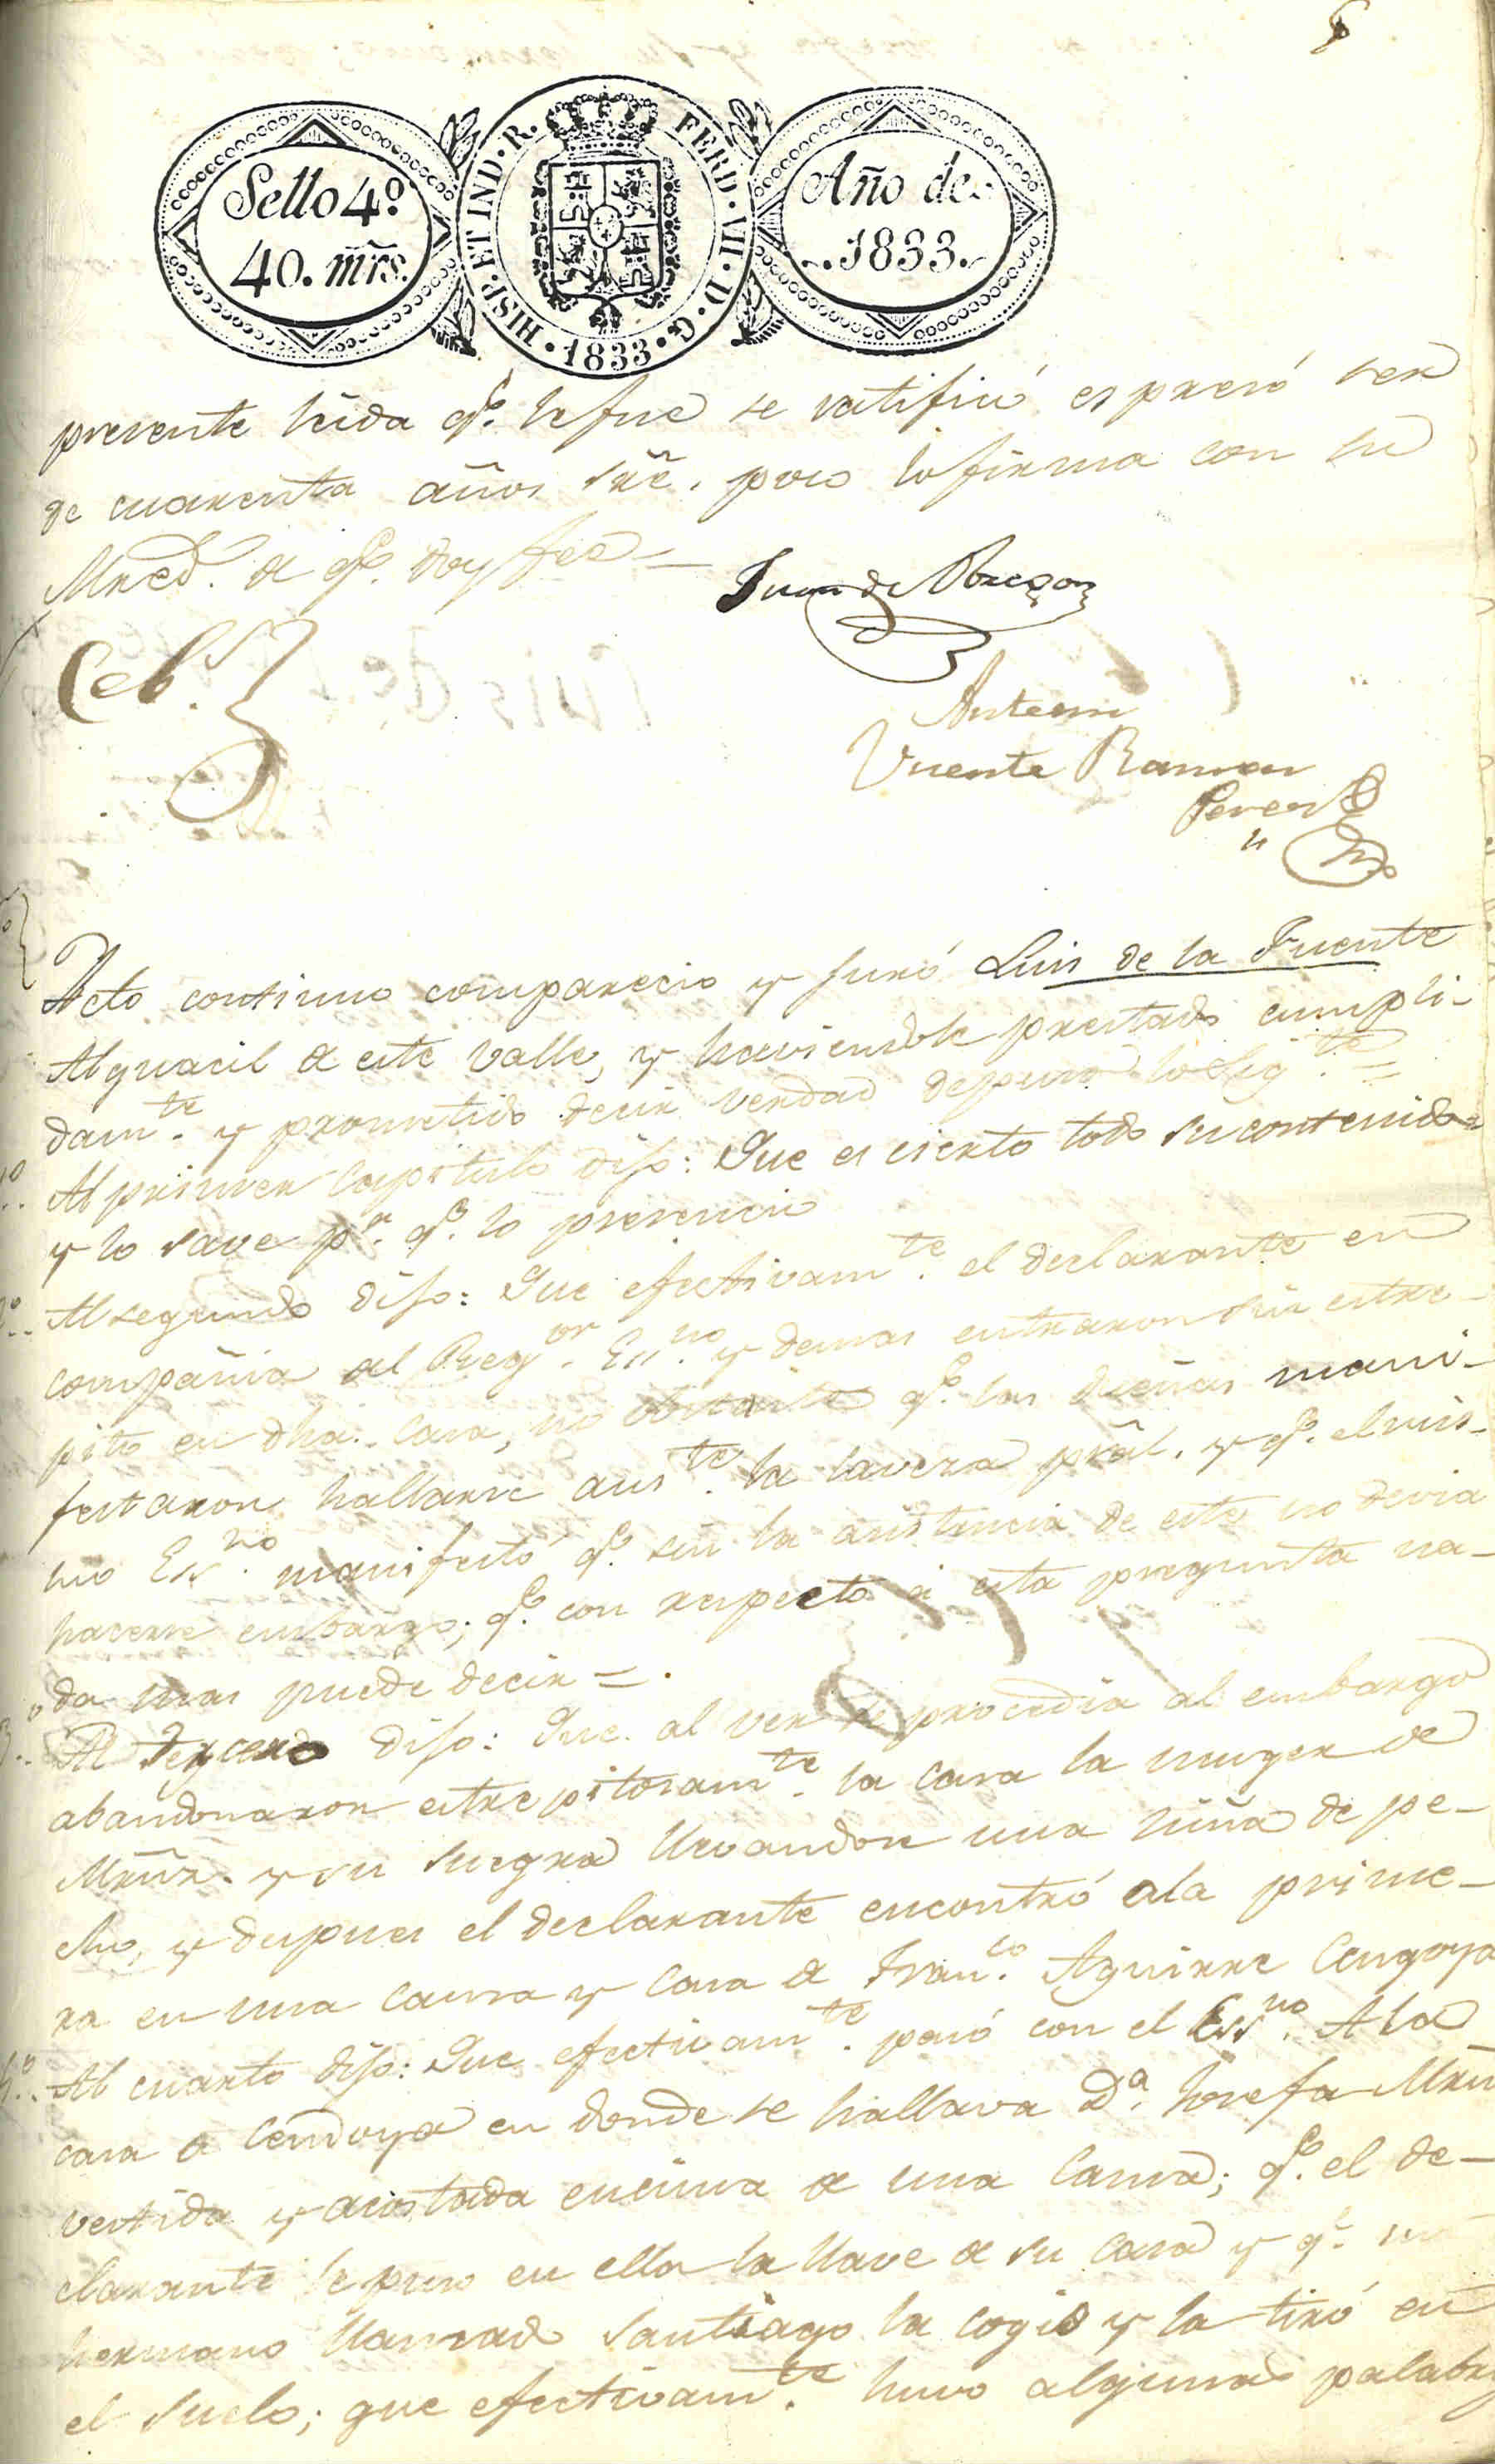 Sello 4º
40. mrs.
HISP. ET IND. R. FERD. VII. D. G. 1833
Año de
1833.
presente leida qe. le fue se ratificó espresó ser
de cuarenta años poco lo firma con su
Mrced. de qe. doy fee =
Juan de Obregon
Ceb.
Antemi
Vicente Ramon
Perez
Acto continuo comparecio y juró Luis de la Fuente
Alguacil de este valle, y haviendole prestado cumpli-
damte. y prometido decir verdad depuso lo sigte. =
1º Al primer capitulo dijo: Que es cierto todo su contenido
y lo save pr. qe. lo presencio
2º Al segundo dijo: Que efectivamte. el declarante en
compañia del Regor. Essno. y demas entraron sin estre-
pito en dha. casa, no obstante qe. las dueñas mani-
festaron hallarse auste. la cavera pral. y qe. el mis-
mo Essno. manifestó qe. sin la asistencia de este no devia
hacerse embargo; qe. con respecto a esta pregunta na-
da mas puede decir =.
3º Al tercero dijo: Que al ver se procedia al embargo
abandonaron estrepitosamte. la casa la muger de
Mrñz. y su suegra llevandose una niña de pe-
cho, y despues el declarante encontró ala prime-
ra en una cama y casa de Franco. Aguirre Cengoya
4º Al cuarto dijo: Que efectivamte. pasó con el Essno. Ala
casa de Cendoya en donde se hallava Da. Josefa Mrñ
vestida y acostada encima de una cama; qe. el de-
clarante le puso en ella la llave de su casa y qe. un
hermano llamado Santiago la cogio y la tiró en
el suelo; que efectivamte. huvo algunas palabr